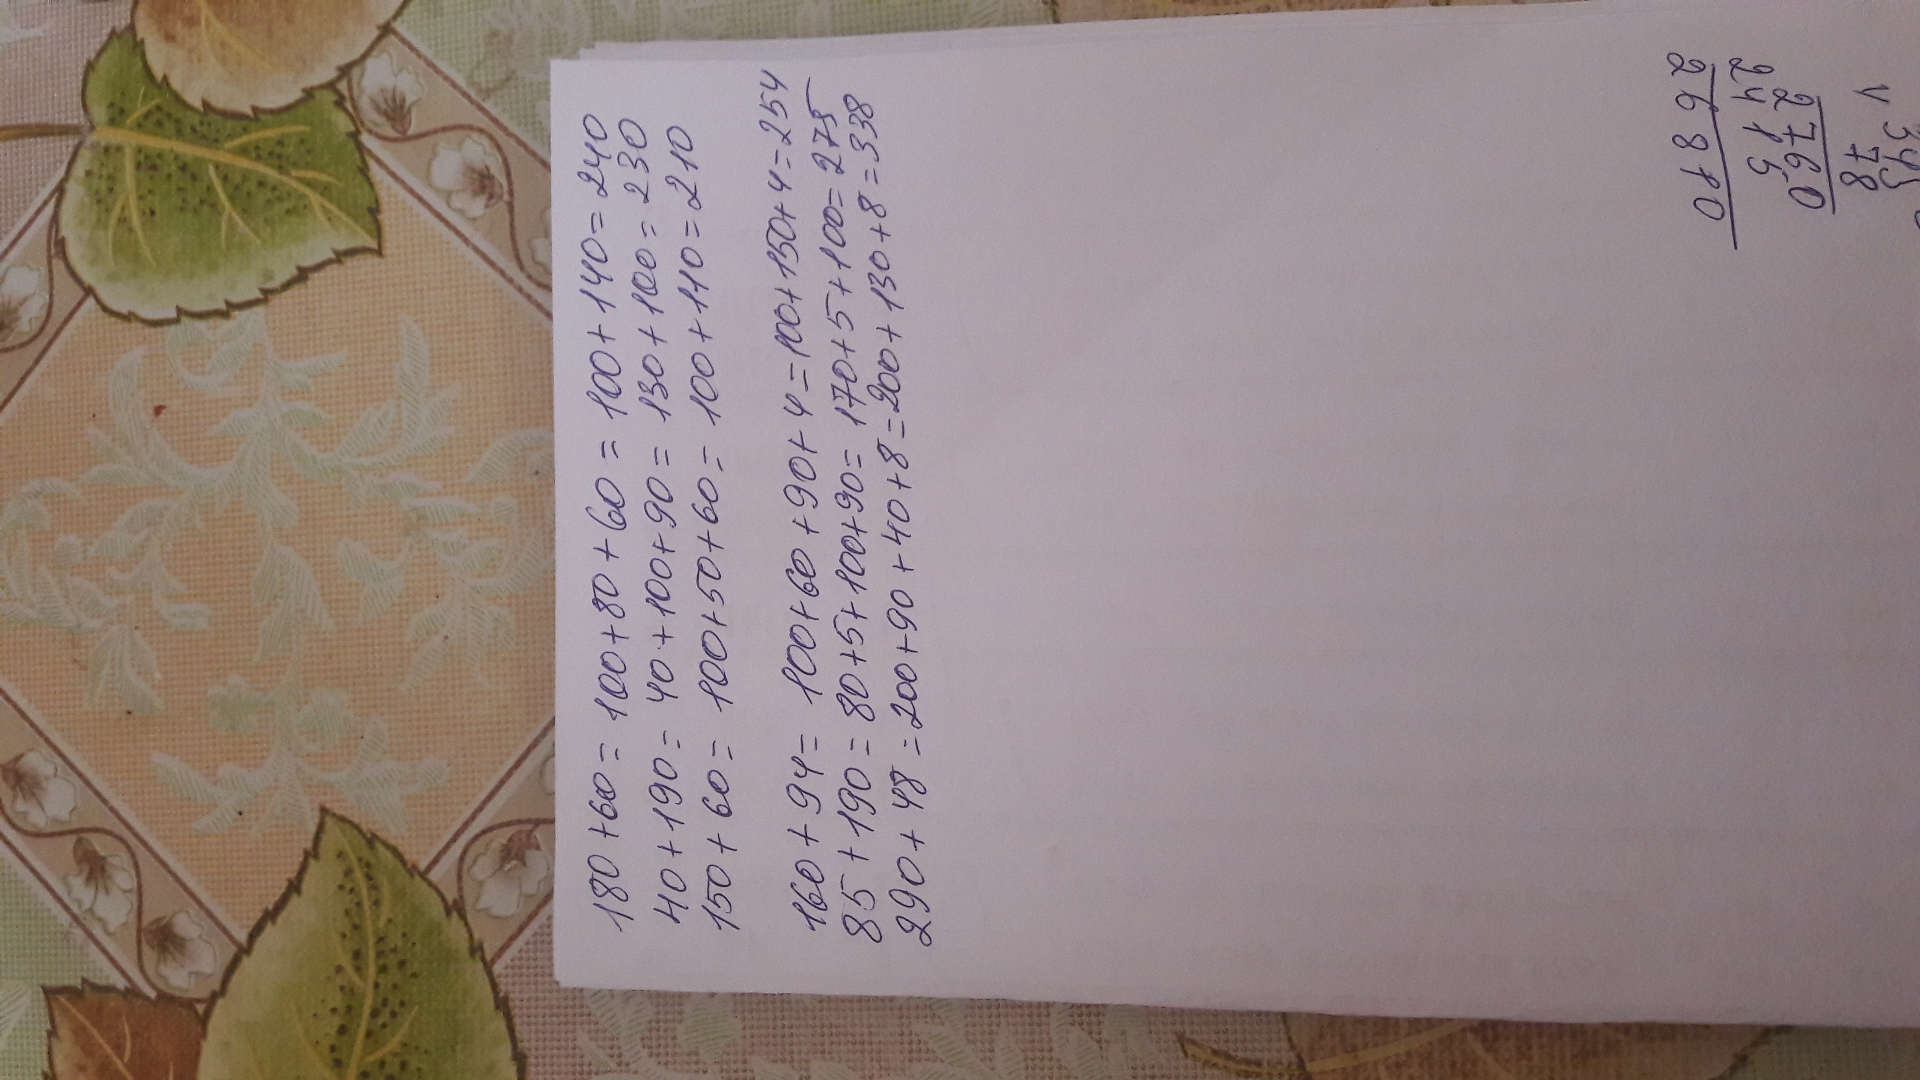 180+60=100+80+60=100+140=240
40+190=40+100+90=130+100=230
150+60=100+50+60=100+110=210
160+94=100+60+90+4=100+150+4=254
85+190=80+5+100+90=170+5+100=275
290+48=200+90+40+8=200+130+8=338
345
78
2760
2415
26810